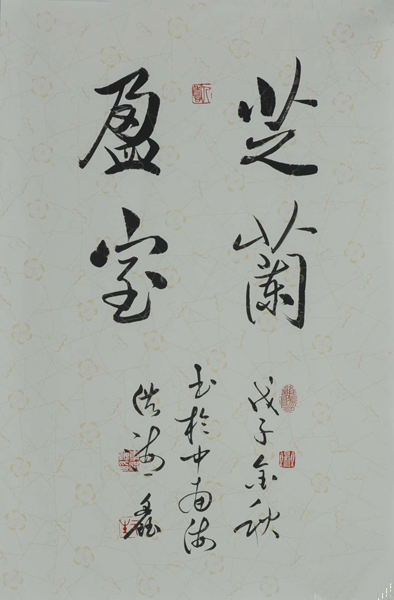 芝蘭
盈室
戊子金秋
书於中南海
洪海鑫